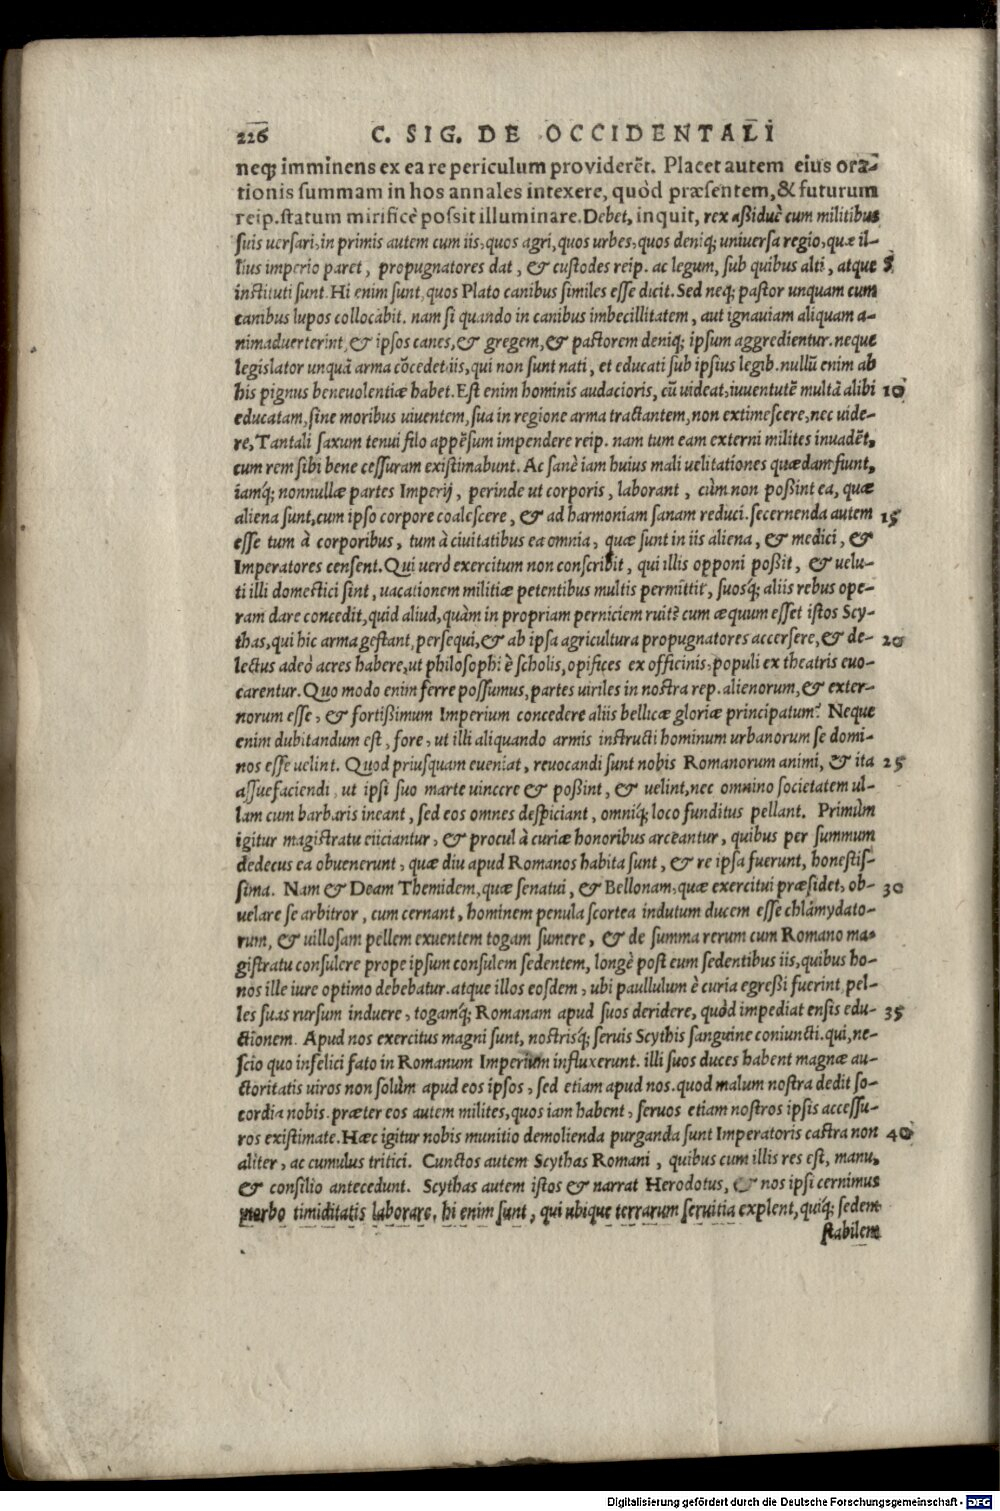 226 C. SIG. DE OCCIDENTALI
neq; imminens ex ea re periculum providerēt. Placet autem eius ora-
tionis summam in hos annales intexere, quòd præsentem, & futurum
reip. statum mirificè possit illuminare. Debet, inquit, rex aßiduè cum militibus
suis uersari, in primis autem cum iis, quos agri, quos urbes, quos deniq; uniuersa regio, quæ il-
lius imperio paret, propugnatores dat, & custodes reip. ac legum, sub quibus alti, atque 5
instituti sunt. Hi enim sunt, quos Plato canibus similes esse dicit. Sed neq; pastor unquam cum
canibus lupos collocabit. nam si quando in canibus imbecillitatem, aut ignauiam aliquam a-
nimaduerterint, & ipsos canes, & gregem, & pastorem deniq; ipsum aggredientur. neque
legislator unquā arma cōcedet iis, qui non sunt nati, et educati sub ipsius legib. nullū enim ab
his pignus beneuolentiæ habet. Est enim hominis audacioris, cū uideat, iuuentutē multā alibi 10
educatam, sine moribus uiuentem, sua in regione arma tractantem, non extimescere, nec uide-
re, Tantali saxum tenui filo appēsum impendere reip. nam tum eam externi milites inuadēt,
cum rem sibi bene cessuram existimabunt. Ac sanè iam huius mali uelitationes quædam fiunt,
iamq́; nonnullæ partes Imperij, perinde ut corporis, laborant, cùm non poßint ea, quæ
aliena sunt, cum ipso corpore coalescere, & ad harmoniam sanam reduci. secernenda autem 15
esse tum à corporibus, tum à ciuitatibus ea omnia, quæ sunt in iis aliena, & medici, &
Imperatores censent. Qui uerò exercitum non conscribit, qui illis opponi poßit, & uelu-
ti illi domestici sint, uacationem militiæ petentibus multis permittit, suosq́; aliis rebus ope-
ram dare concedit, quid aliud, quàm in propriam perniciem ruit? cum æquum esset istos Scy-
thas, qui hic arma gestant, persequi, & ab ipsa agricultura propugnatores accersere, & de- 20
lectus adeò acres habere, ut philosophi è scholis, opifices ex officinis, populi ex theatris euo-
carentur. Quo modo enim ferre possumus, partes uiriles in nostra rep. alienorum, & exter-
norum esse, & fortißimum Imperium concedere aliis bellicæ gloriæ principatum? Neque
enim dubitandum est, fore, ut illi aliquando armis instructi hominum urbanorum se domi-
nos esse uelint. Quod priusquam eueniat, reuocandi sunt nobis Romanorum animi, & ita 25
assuefaciendi, ut ipsi suo marte uincere & poßint, & uelint, nec omnino societatem ul-
lam cum barbaris ineant, sed eos omnes despiciant, omniq́; loco funditus pellant. Primùm
igitur magistratu eiiciantur, & procul à curiæ honoribus arceantur, quibus per summum
dedecus ea obuenerunt, quæ diu apud Romanos habita sunt, & re ipsa fuerunt, honestis-
sima. Nam & Deam Themidem, quæ senatui, & Bellonam, quæ exercitui præsidet, ob- 30
uelare se arbitror, cum cernant, hominem penula scortea indutum ducem esse chlamydato-
rum, & uillosam pellem exuentem togam sumere, & de summa rerum cum Romano ma-
gistratu consulere prope ipsum consulem sedentem, longè post eum sedentibus iis, quibus ho-
nos ille iure optimo debebatur. atque illos eosdem, ubi paullulum è curia egreßi fuerint, pel-
les suas rursum induere, togamq́; Romanam apud suos deridere, quòd impediat ensis edu- 35
ctionem. Apud nos exercitus magni sunt, nostrisq́; seruis Scythis sanguine coniuncti. qui, ne-
scio quo infelici fato in Romanum Imperium influxerunt. illi suos duces habent magnæ au-
ctoritatis uiros non solùm apud eos ipsos, sed etiam apud nos. quod malum nostra dedit so-
cordia nobis. præter eos autem milites, quos iam habent, seruos etiam nostros ipsis accessu-
ros existimate. Hæc igitur nobis munitio demolienda purganda sunt Imperatoris castra non 40
aliter, ac cumulus tritici. Cunctos autem Scythas Romani, quibus cum illis res est, manu,
& consilio antecedunt. Scythas autem istos & narrat Herodotus, & nos ipsi cernimus
morbo timiditatis laborare. hi enim sunt, qui ubique terrarum seruitia explent, quiq́; sedem
stabilem
Digitalisierung gefördert durch die Deutsche Forschungsgemeinschaft - DFG